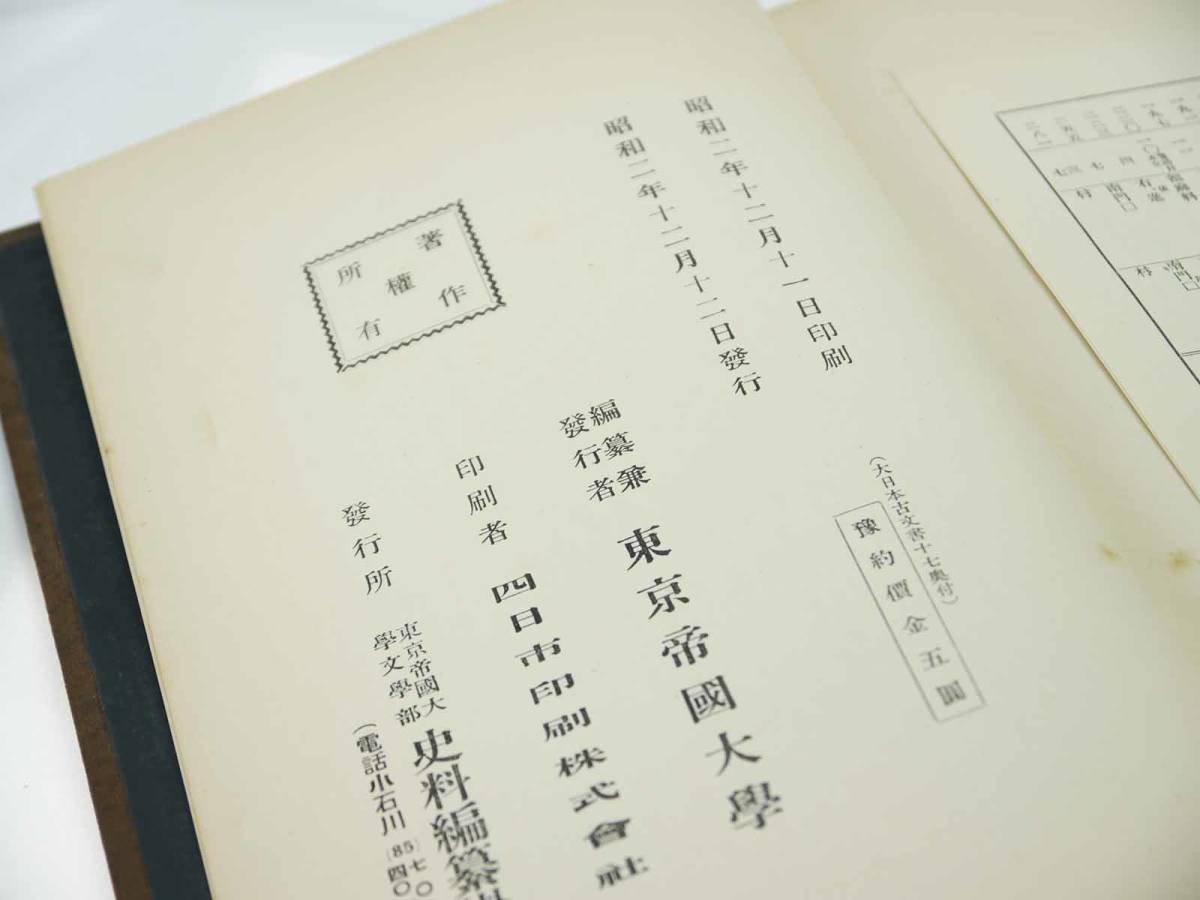 昭和二年十二月十一日印刷
昭和二年十二月十二日發行
著作
權
所有
(大日本古文書十七奧付)
豫約價金五圓
編纂兼
發行者
東京帝國大學
印刷者
四日市印刷株式會社
發行所
東京帝國大
學文學部
史料編纂
(電話小石川
(85)
七〇
四〇